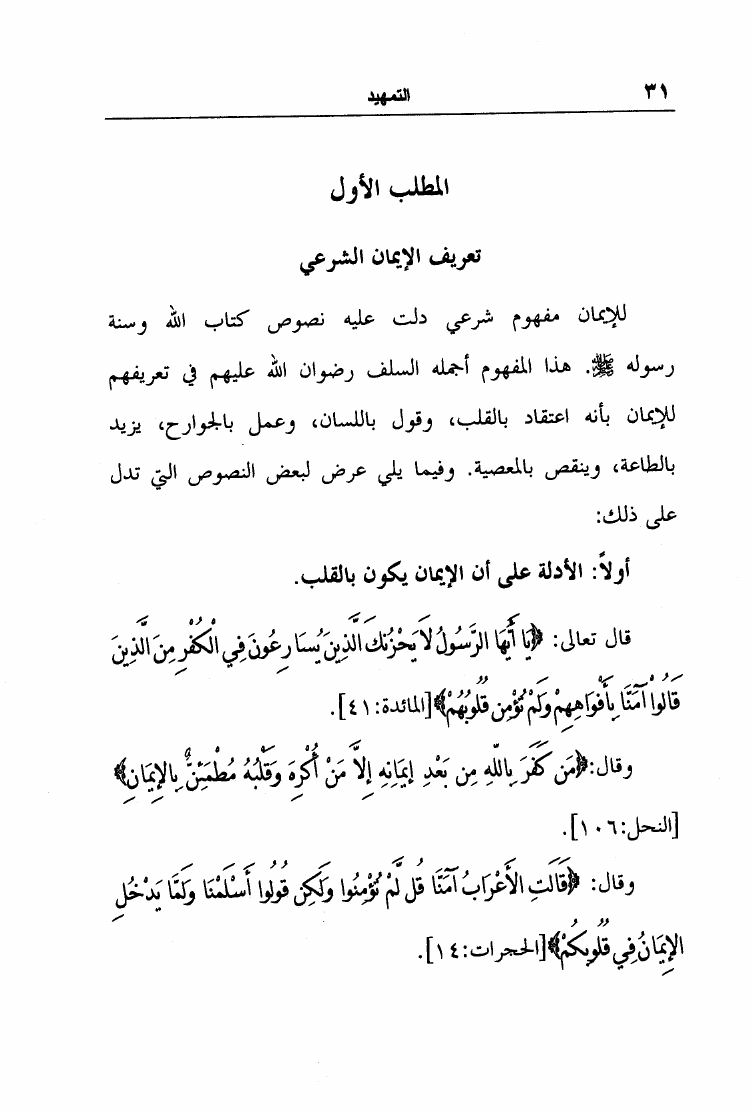 ٣١ التمهيد
المطلب الأول
تعريف الإيمان الشرعي
للإيمان مفهوم شرعي دلت عليه نصوص كتاب الله وسنة
رسوله ﷺ. هذا المفهوم أجمله السلف رضوان الله عليهم في تعريفهم
للإيمان بأنه اعتقاد بالقلب، وقول باللسان، وعمل بالجوارح، يزيد
بالطاعة، وينقص بالمعصية. وفيما يلي عرض لبعض النصوص التي تدل
على ذلك:
أولاً: الأدلة على أن الإيمان يكون بالقلب.
قال تعالى: ﴿يَا أَيُّهَا الرَّسُولُ لاَ يَحْزُنكَ الَّذِينَ يُسَارِعُونَ فِي الْكُفْرِ مِنَ الَّذِينَ
قَالُواْ آمَنَّا بِأَفْوَاهِهِمْ وَلَمْ تُؤْمِن قُلُوبُهُمْ﴾[المائدة:٤١].
وقال:﴿مَن كَفَرَ بِاللّهِ مِن بَعْدِ إيمَانِهِ إِلاَّ مَنْ أُكْرِهَ وَقَلْبُهُ مُطْمَئِنٌّ بِالإِيمَانِ﴾
[النحل:١٠٦].
وقال: ﴿قَالَتِ الأَعْرَابُ آمَنَّا قُل لَّمْ تُؤْمِنُوا وَلَكِن قُولُوا أَسْلَمْنَا وَلَمَّا يَدْخُلِ
الإِيمَانُ فِي قُلُوبِكُمْ﴾[الحجرات:١٤].